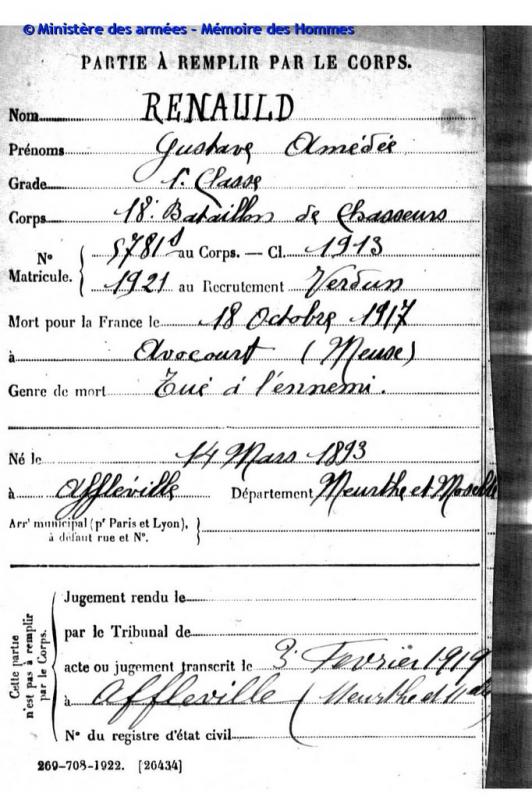 © Ministère des armées - Mémoire des Hommes
PARTIE À REMPLIR PAR LE CORPS.
Nom RENAULD
Prénoms Gustave Amédée
Grade 1e Classe
Corps 18e Bataillon de Chasseurs
N° Matricule. 5781s au Corps. — Cl. 1913
1921 au Recrutement Verdun
Mort pour la France le 18 Octobre 1917
à Avocourt (Meuse)
Genre de mort Tué à l'ennemi.
Né le 14 Mars 1893
à Affléville Département Meurthe et Moselle
Arrt municipal (pr Paris et Lyon),
à défaut rue et N°.
Cette partie n'est pas à remplir par le Corps.
Jugement rendu le
par le Tribunal de
acte ou jugement transcrit le 3 Février 1919
à Affleville (Meurthe et
N° du registre d'état civil
269-708-1922. [26434]